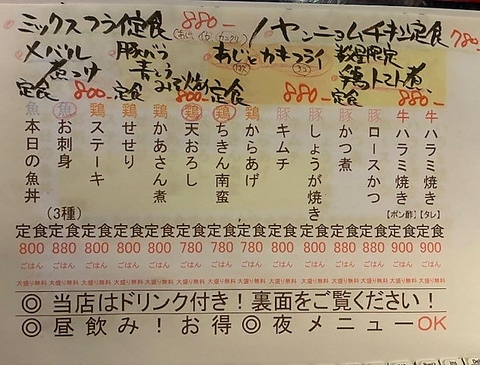 ミックスフライ定食 880-
(あじ・イカ・カニクリ)
ヤンニョムチキン定食 780-
メバル煮つけ定食 800-
豚バラ青じそみそ焼き定食 800-
あじとカキフライ定食 880-
数量限定
鶏トマト煮定食 880-
牛 ハラミ焼き 【タレ】 定食 900 ごはん 大盛り無料
牛 ハラミ焼き 【ポン酢】 定食 900 ごはん 大盛り無料
豚 ロースかつ 定食 880 ごはん 大盛り無料
豚 かつ煮 定食 880 ごはん 大盛り無料
豚 しょうが焼き 定食 800 ごはん 大盛り無料
豚 キムチ 定食 800 ごはん 大盛り無料
鶏 からあげ 定食 780 ごはん 大盛り無料
鶏 ちきん南蛮 定食 780 ごはん 大盛り無料
鶏 天おろし 定食 780 ごはん 大盛り無料
鶏 かあさん煮 定食 800 ごはん 大盛り無料
鶏 せせり 定食 800 ごはん 大盛り無料
鶏 ステーキ 定食 800 ごはん 大盛り無料
魚 お刺身 (3種) 定食 880 ごはん 大盛り無料
魚 本日の魚丼 定食 800 ごはん 大盛り無料
◎当店はドリンク付き!裏面をご覧ください!
◎昼飲み!お得◎夜メニューOK